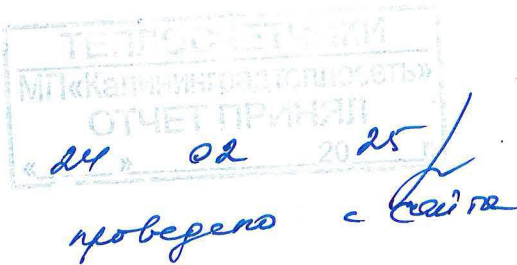 ТЕПЛОСЧЕТЧИКИ
МП«Калининградтеплосеть»
ОТЧЕТ ПРИНЯЛ
« 24 » 02 20 25 г.
проведено с сайта